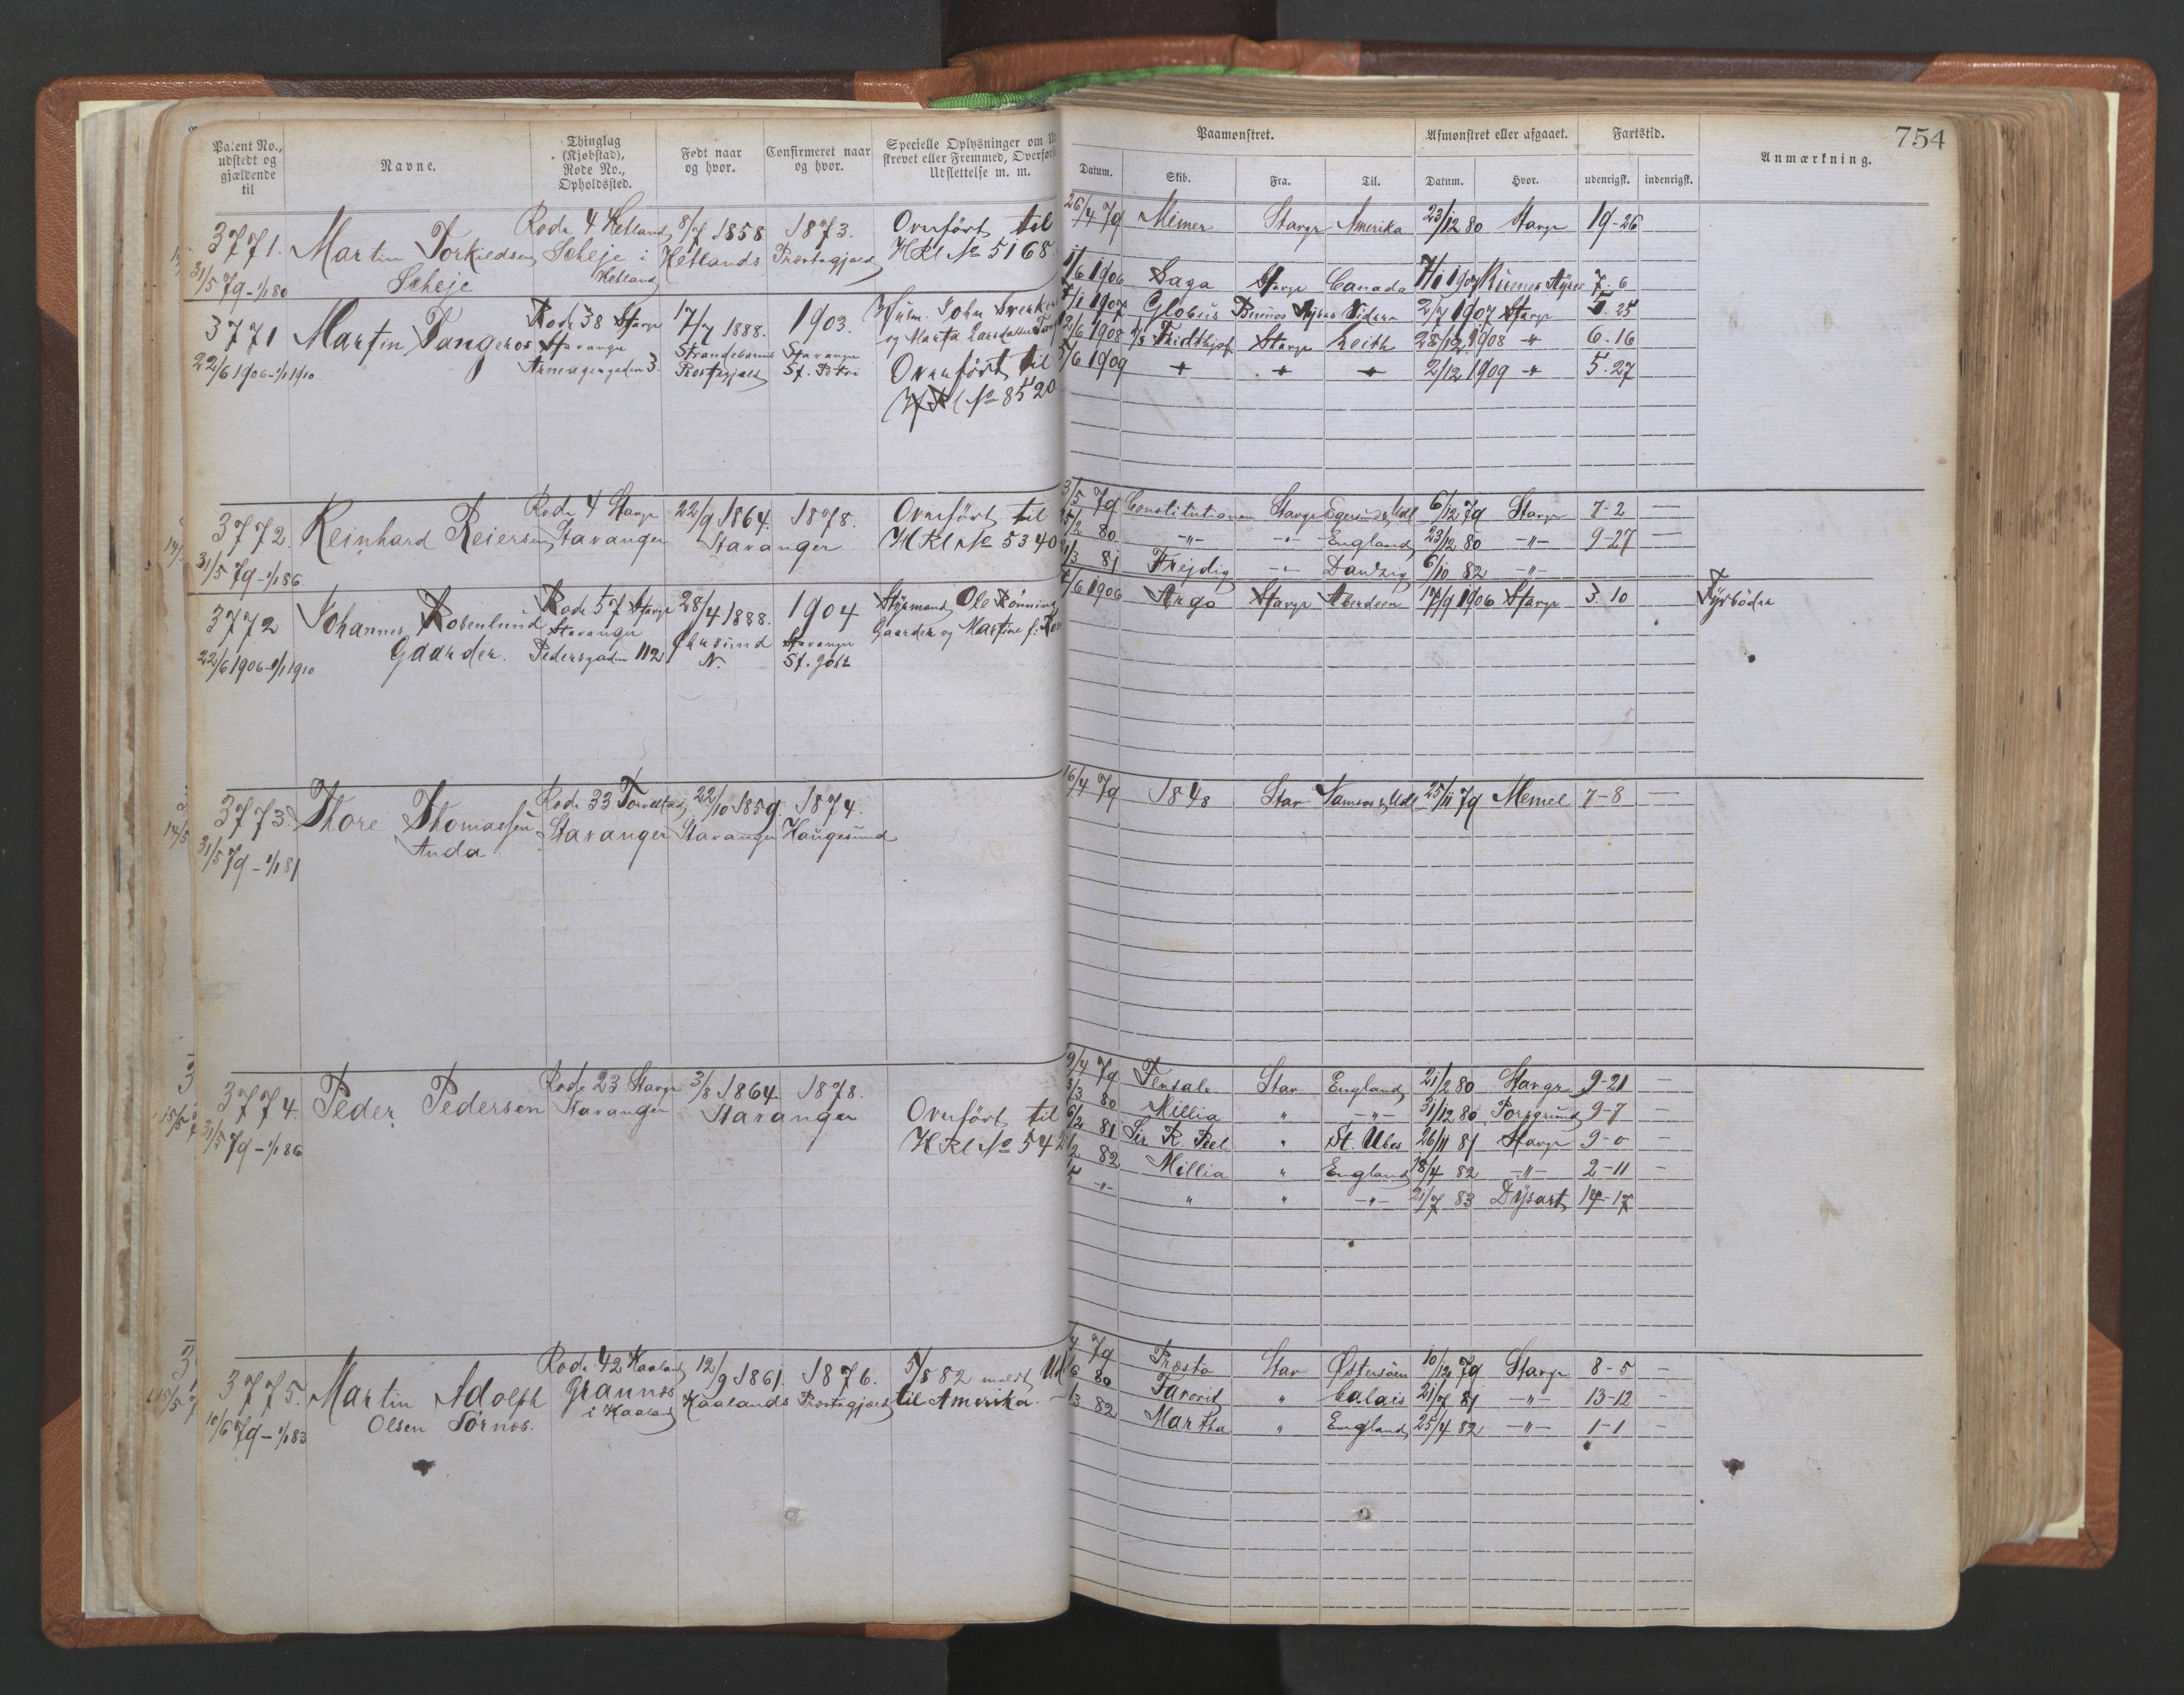 754
Patent No., udstedt og gjældende til
Navne.
Thinglag (Kjøbstad), Rode No., Opholdssted.
Født naar og hvor.
Confirmeret naar og hvor.
Specielle Oplysninger om
strevet eller Fremmed, Overført
Udslettelse m. m.
Paamønstret.
Afmønstret eller afgaaet.
Fartstid.
Anmærkning.
Datum. Skib. Fra. Til. Datum. Hvor. udenrigsk. indenrigsk.
3771. Martin Torkildsen Rode 4 Hetland 8/7 1858 1873. Overført til 26/4 79 Mimer Stavgr Amerika 23/12 80 Stavgr 19-26
31/5 79 - 1/1 80 Scheje Scheje i Hetland Hetlands Præstegjæld HRl No 5168
3771 Martin Vangenes Rode 38 Stavgr 17/7 1888. 1903. Husm. John 1/6 1906 Saga Stavgr Canada 7/1 1907 Buenos Ayres 7-6
22/6 1906-1/1 1910 Stavanger Strandebarms Præstegjæld Stavanger St. Petri og Marta Larsdatter 7/1 1907 Globus Buenos Ayres 2/7 1907 Stavgr 5. 25
12/6 1908 Fridthjof Stavgr Leith 28/12 1908 -"- 6. 16
Overført til 5/6 1909 -"- -"- -"- 2/12 1909 -"- 5. 27
HRl No 8520
3772. Reinhard Reiersen Rode 4 Stavgr 22/9 1864. 1878. Overført til 3/5 79 Constitutionen Stavgr Egersund & Udl 6/12 79 Stavgr 7-2 —
31/5 79 - 1/1 86 Stavanger Stavanger HRl No 5340 25/2 80 -"- -"- England 23/12 80 -"- 9-27 —
21/3 81 Frejdig -"- Danzig 6/10 82 -"-
3772 Johannes Rosenlund Rode 57 Stavgr 28/4 1888. 1904 Styrmand Ole Rønning 1/6 1906 Argo Stavgr Aberdeen 17/9 1906 Stavgr 3. 10 Fyrbøder
22/6 1906-1/1 1910 Gaarder. Stavanger Pedersgaden 112 Chrsund N. Stavanger St. Joh. Gaarder og Martine f.
3773. Thore Thomassen Rode 33 Torvestad 22/10 1859. 1874. 16/4 79 1848 Stav Namsos & Udl 25/11 79 Memel 7-8 —
31/5 79 - 1/1 81 Anda Stavanger Stavanger Haugesund
3774. Peder Pedersen Rode 23 Stavgr 3/8 1864 1878. 9/4 79 Tensale Stav England 21/2 80 Stavgr 9-21 —
31/5 79 - 1/1 86 Stavanger Stavanger Overført til 3/3 80 Millia " -"- 31/12 80 Porsgrund 9-7 —
HRl No 542 6/2 81 Sir R. Peel " St. Ubes 26/11 81 Stavgr 9-0 —
/2 82 Millia " England 18/4 82 -"- 2-11 —
/5 -"- " " -"- 21/7 83 Dysart 14-17
3775. Martin Adolph Rode 42 Haaland 12/9 1861. 1876. 5/8 82 meldt Ud /4 79 Præsto Stav Østersøen 10/12 79 Stavgr 8-5 —
10/6 79 - 1/1 83 Olsen Sørnes. Grannes i Haaland Haalands Præstegjæld til Amerika. /6 80 Favorit " Calais 21/7 81 -"- 13-12 —
/3 82 Martha " England 25/4 82 -"- 1-1 —